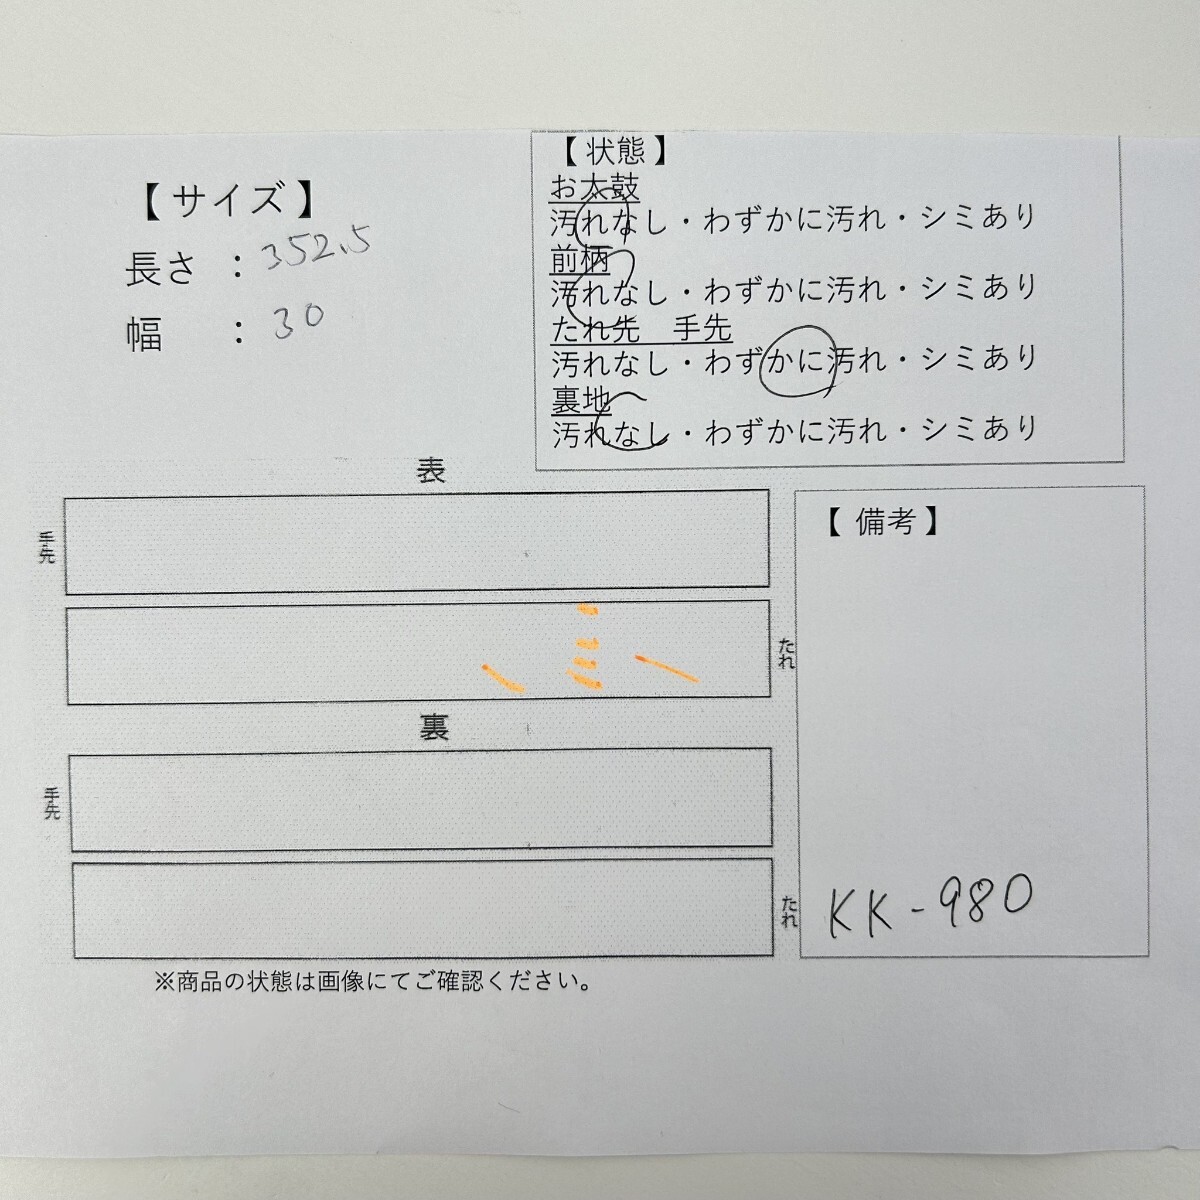 【 サイズ 】
長さ ：352.5
幅 ：30
【 状態 】
お太鼓
汚れなし・わずかに汚れ・シミあり
前柄
汚れなし・わずかに汚れ・シミあり
たれ先 手先
汚れなし・わずかに汚れ・シミあり
裏地
汚れなし・わずかに汚れ・シミあり
表
手先
たれ
裏
手先
たれ
【 備考 】
KK-980
※商品の状態は画像にてご確認ください。